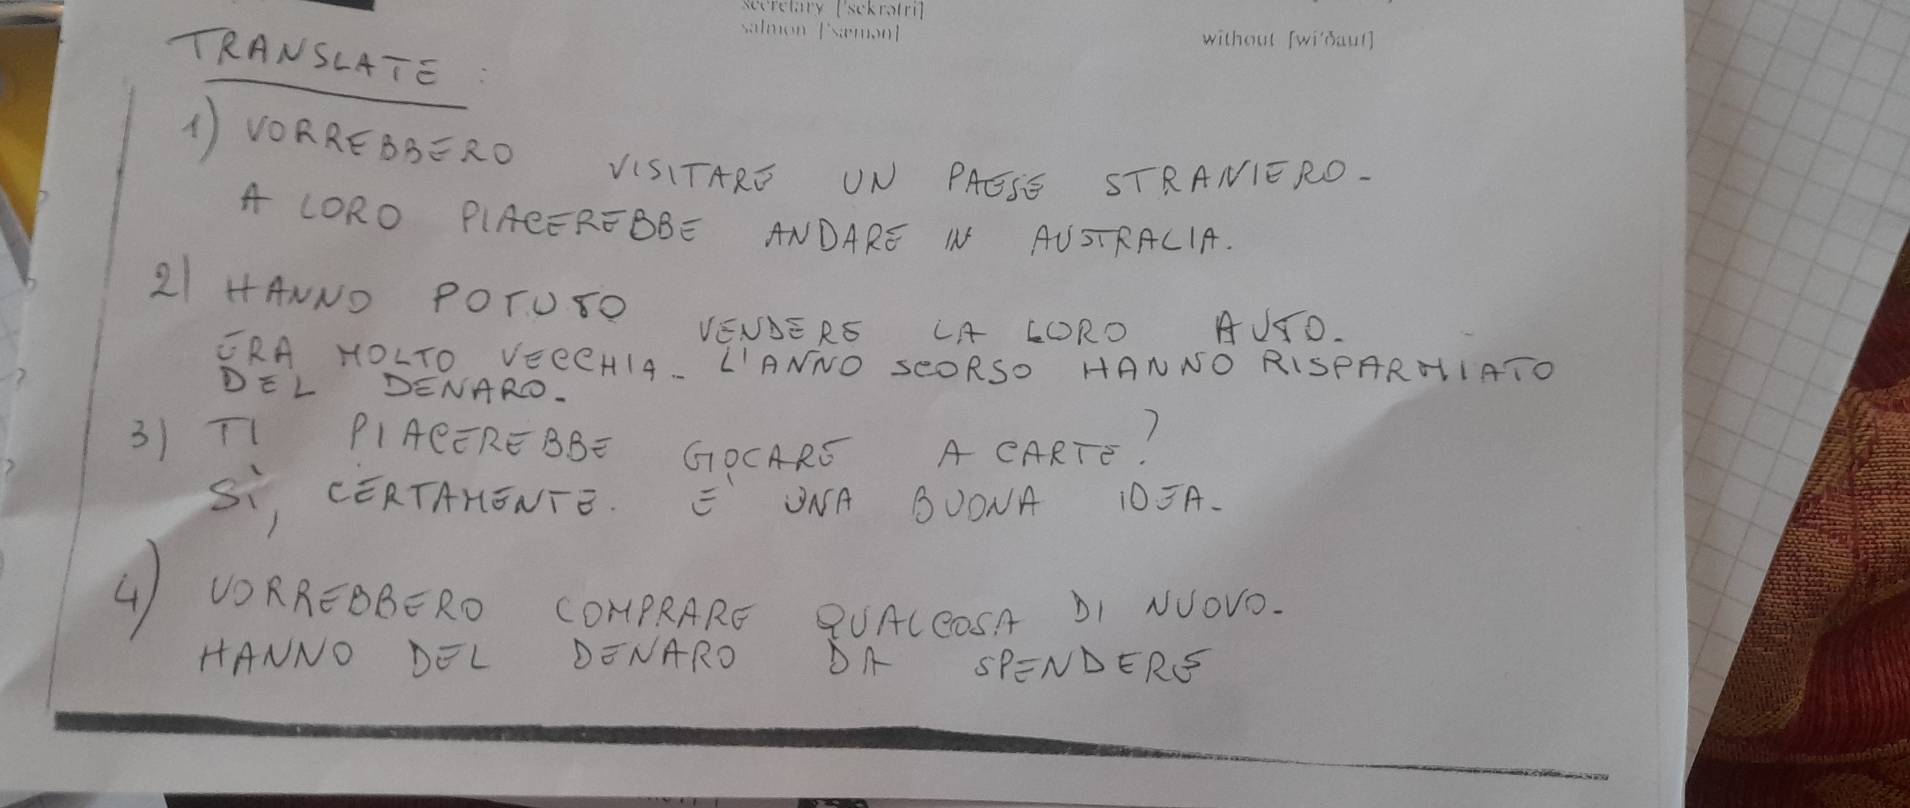 secretary ['sekrətri]
salmon ['sæmən]
without [wi'ðaut]
TRANSLATE:
1) VORREBBERO VISITARE UN PAESE STRANIERO-
A LORO PIACEREBBE ANDARE IN AUSTRALIA.
2) HANNO POTUTO VENDERE LA LORO AUTO.
ERA MOLTO VECCHIA- L'ANNO SCORSO HANNO RISPARMIATO
DEL DENARO-
3) TI PIACEREBBE GIOCARE A CARTE?
SÌ, CERTAMENTE. E' UNA BUONA IDEA-
4) VORREBBERO COMPRARE QUALCOSA DI NUOVO-
HANNO DEL DENARO DA SPENDERE